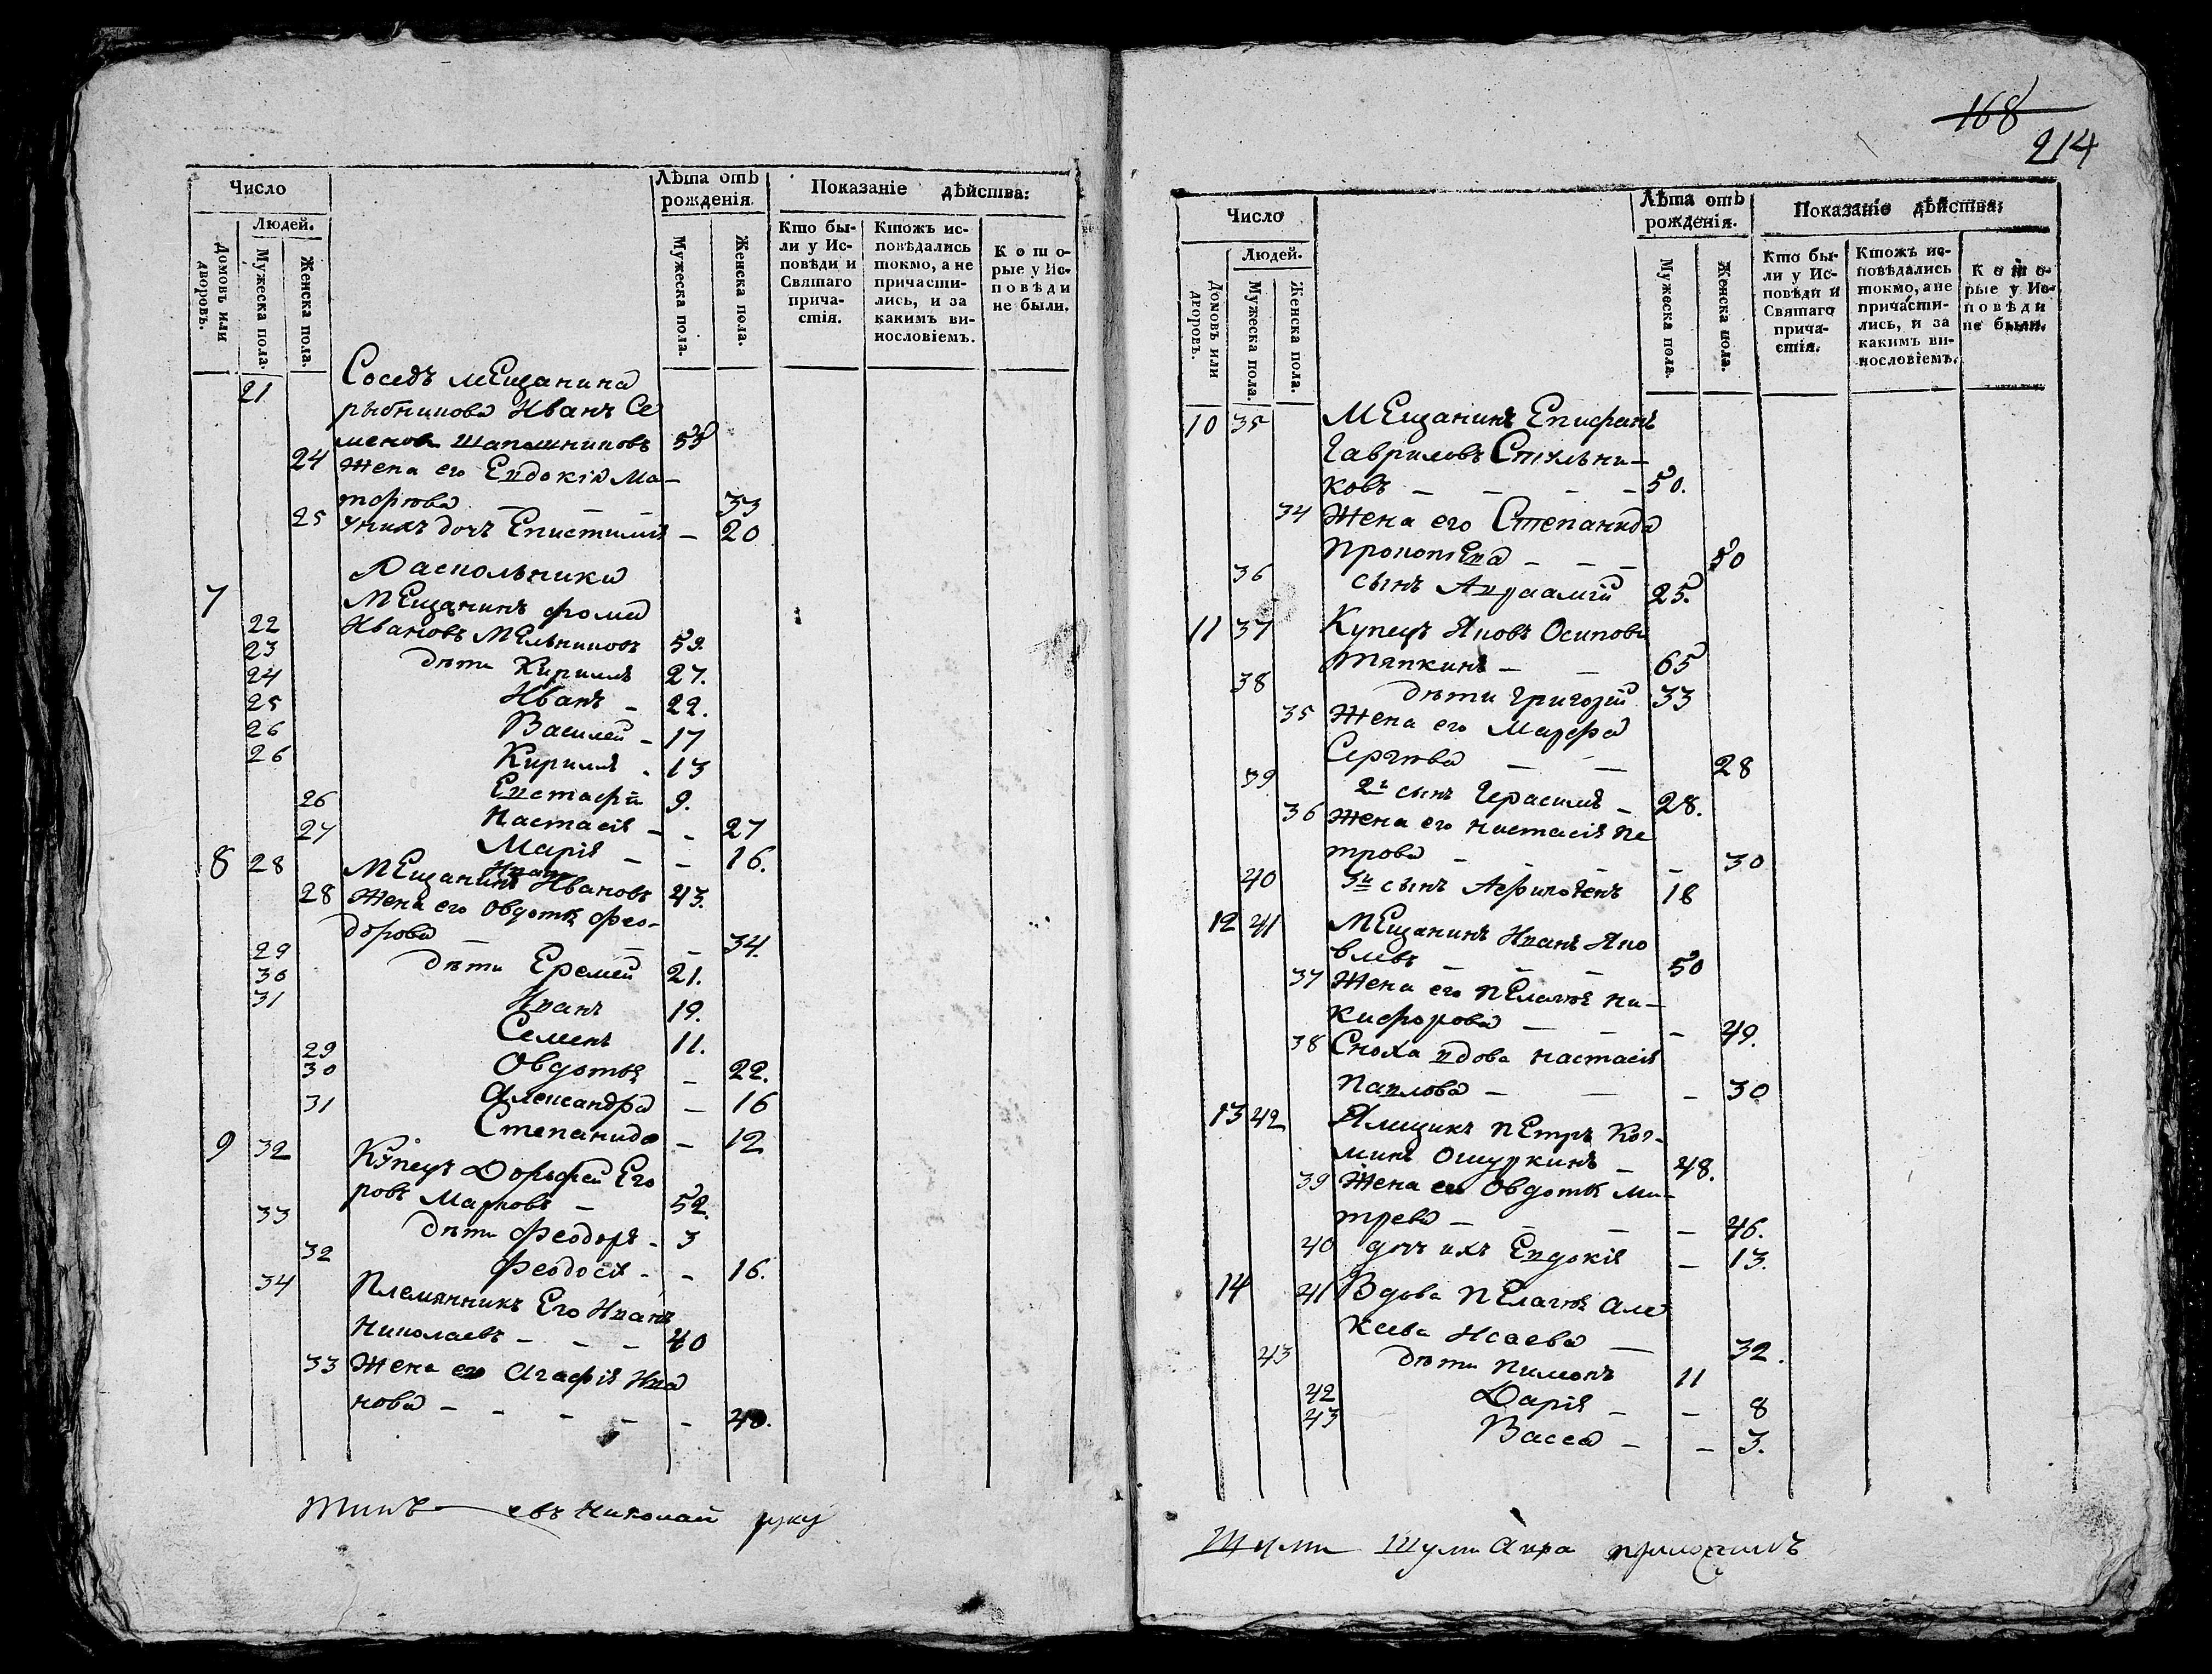 168
214
Число
Лѣта отъ рожденія.
Показаніе дѣйства:
Людей.
Домовъ или дворовъ.
Мужеска пола.
Женска пола.
Мужеска пола.
Женска пола.
Кто бы-
ли у Ис-
повѣди и
Святаго
прича-
стія.
Ктожъ ис-
повѣдались
токмо, а не
причасти-
лись, и за
какимъ ви-
нословіемъ.
Кото-
рые у Ис-
повѣди
не были.
21 Соседъ мещанина
рыбникова Иванъ Се
менов Шапошниковъ 55
24 Жена его Евдокія Ма-
тфѣева 33
25 У нихъ дочь Епистимія 20
Раскольники
7 Мещанинъ Фома
22 Ивановъ Мельниковъ 59.
23 дѣти Кириллъ 27.
24 Иванъ 22.
25 Василей 17
26 Кириллъ 13
26 Евстафїй 9.
26 Настасія 27
27 Марія 16.
8 28 Мещанинъ Иванъ Ивановъ 43.
28 Жена его Овдотья Фео-
дорова 34.
29 дѣти Еремей 21.
30 Иванъ 19.
31 Семенъ 11.
29 Овдотья 22.
30 Александра 16
31 Степанида 12
9 32 Купецъ Дорофей Его
ровъ Марковъ 52.
33 дѣти Феодоръ 3
32 Феодосія 16.
34 Племянникъ Его Иванъ
Николаевъ 40
33 Жена его Агафія Ива
нова 40.
евъ Николай руку
Число
Лѣта отъ рожденія.
Показаніе дѣйства:
Людей.
Домовъ или дворовъ.
Мужеска пола.
Женска пола.
Мужеска пола.
Женска пола.
Кто бы-
ли у Ис-
повѣди и
Святаго
прича-
стія.
Ктожъ ис-
повѣдались
токмо, а не
причасти-
лись, и за
какимъ ви-
нословіемъ.
Кото-
рые у Ис-
повѣди
не были.
10 35 Мещанинъ Епифанъ
Гавриловъ Стульни-
ковъ 50.
34 Жена его Степанида
Прокопьева 50
36 сынъ Авраамїй 25.
11 37 Купецъ Яковъ Осиповъ
Тяпкинъ 65
38 дѣти Григорїй 33
35 Жена его Марфа
Сергѣева 28
39 2й сынъ Герасимъ 28.
36 Жена его Настасія Пе
трова 30
40 3й сынъ Афиногенъ 18
12 41 Мещанинъ Иванъ Яко
влевъ 50
37 Жена его Пелагея Ни-
кифорова 49.
38 Сноха вдова Настасія
Павлова 30
13 42 Ямщикъ Петръ Коз-
минъ Ошуркинъ 48.
39 Жена его Овдотья Ми-
трева 46.
40 дочь ихъ Евдокія 13.
14 41 Вдова Пелагея Але
ксева Исаева 32.
43 дѣти Пимонъ 11
42 Дарія 8
43 Васса 3.
приложилъ